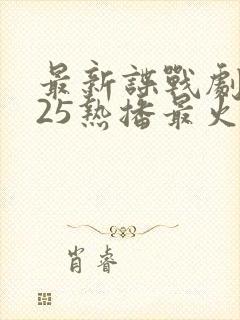 最新諜戰劇
25熱播最火
肖睿